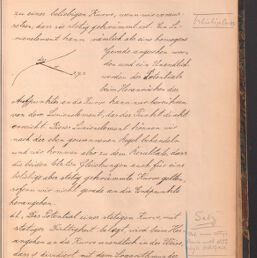 zu einer beliebigen Kurve, wenn wir voraus-
setzen, dass sie stetig gekrümmt ist. Ein Li-
nienelement kann nämlich als eine homogene
Gerade angesehen wer-
den und ein Unendlich
werden des Potentials
beim Heranrücken des
Aufpunktes an die Curve kann nur herrühren
von dem Linienelement, das der Punkt direkt
erreicht. Dieses Linienelement können wir
nach der oben gewonnenen Regel behandeln
und wir kommen also zu dem Resultate, dass
die beiden letzten Gleichungen auch für eine
beliebige aber stetig gekrümmte Kurve gelten,
sofern wir nicht gerade an die Endpunkte
herangehen.
Das Potential einer stetigen Kurve, mit
stetiger Dichtigkeit belegt, wird beim Her-
angehen an die Kurve unendlich in der Weise,
dass V dividiert mit dem Logarithmus der
Satz